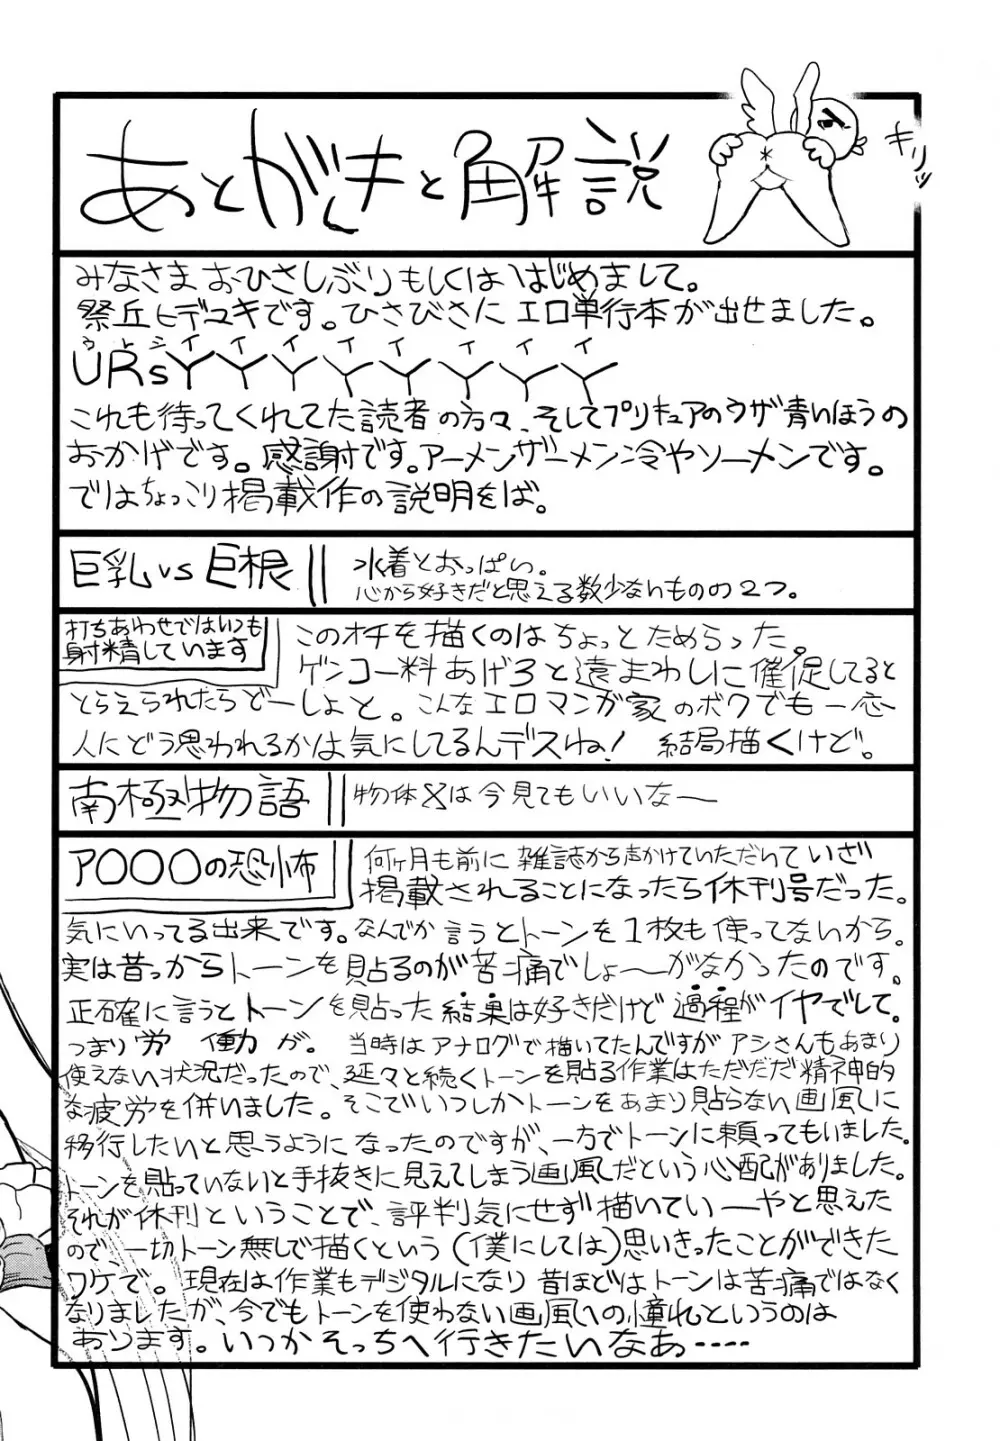 あとがきと解説
キリッ
みなさまおひさしぶりもしくははじめまして。
祭丘ヒデユキです。ひさびさにエロ単行本が出せました。
ウレシイイイイイイイイ
URsYYYYYYYY
これも待ってくれてた読者の方々、そしてプリキュアのウザ青いほうの
おかげです。感謝です。アーメンザーメン冷やソーメンです。
ではちょっこり掲載作の説明をば。
巨乳vs巨根
水着とおっぱい。
心から好きだと思える数少ないものの2つ。
打ちあわせではいつも
射精しています
このオチを描くのはちょっとためらった。
ゲンコー料あげろと遠まわしに催促してると
とらえられたらどーしよと。こんなエロマンガ家のボクでも一応
人にどう思われるかは気にしてるんデスね! 結局描くけど。
南極物語
物体Xは今見てもいいなー
ア〇〇〇の恐怖
何ヶ月も前に雑誌から声かけていただいていざ
掲載されることになったら休刊号だった。
気にいってる出来です。なんでか言うとトーンを1枚も使ってないから。
実は昔っからトーンを貼るのが苦痛でしょーがなかったのです。
正確に言うとトーンを貼った結果は好きだけど過程がイヤでして。
つまり労働が。当時はアナログで描いてたんですがアシさんもあまり
使えない状況だったので、延々と続くトーンを貼る作業はただただ精神的
な疲労を併いました。そこでいつしかトーンをあまり貼らない画風に
移行したいと思うようになったのですが、一方でトーンに頼ってもいました。
トーンを貼っていないと手抜きに見えてしまう画風だという心配がありました。
それが休刊ということで、評判気にせず描いていーやと思えた
ので一切トーン無しで描くという(僕にしては)思いきったことができた
ワケで。現在は作業もデジタルになり昔ほどはトーンは苦痛ではなく
なりましたが、今でもトーンを使わない画風への憧れというのは
あります。いつかそっちへ行きたいなあ‥‥